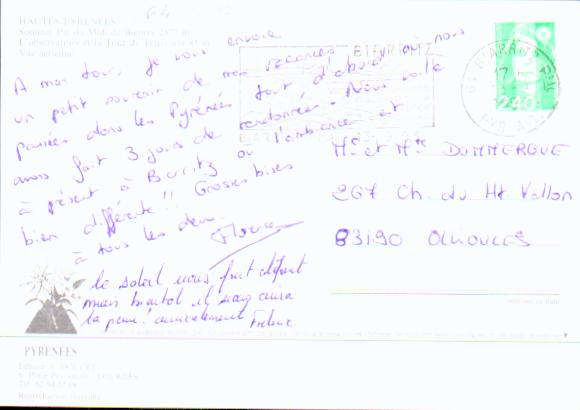 HAUTES PYRENEES
Sommet Pic du Midi de Bigorre 2877 m
L'observatoire et la Tour de Télévision
Vue aérienne
A mon tour, je vous envoie
un petit souvenir de mes vacances
passées dans les Pyrénées tout d'abord nous
avons fait 3 jours de randonnées. Nous voilà
à présent à Biarritz où l'ambiance est
bien différente!! Grosses bises
à tous les deux.
Florence
le soleil nous fait défaut
mais bientôt il nous cuira
la peau! amicalement
BIARRITZ
2,40
Mr et Mme DOMMERGUE
267 Ch. du Ht Vallon
83190 OLLIOULES
PYRENEES
LOURDES
Reproduction interdite